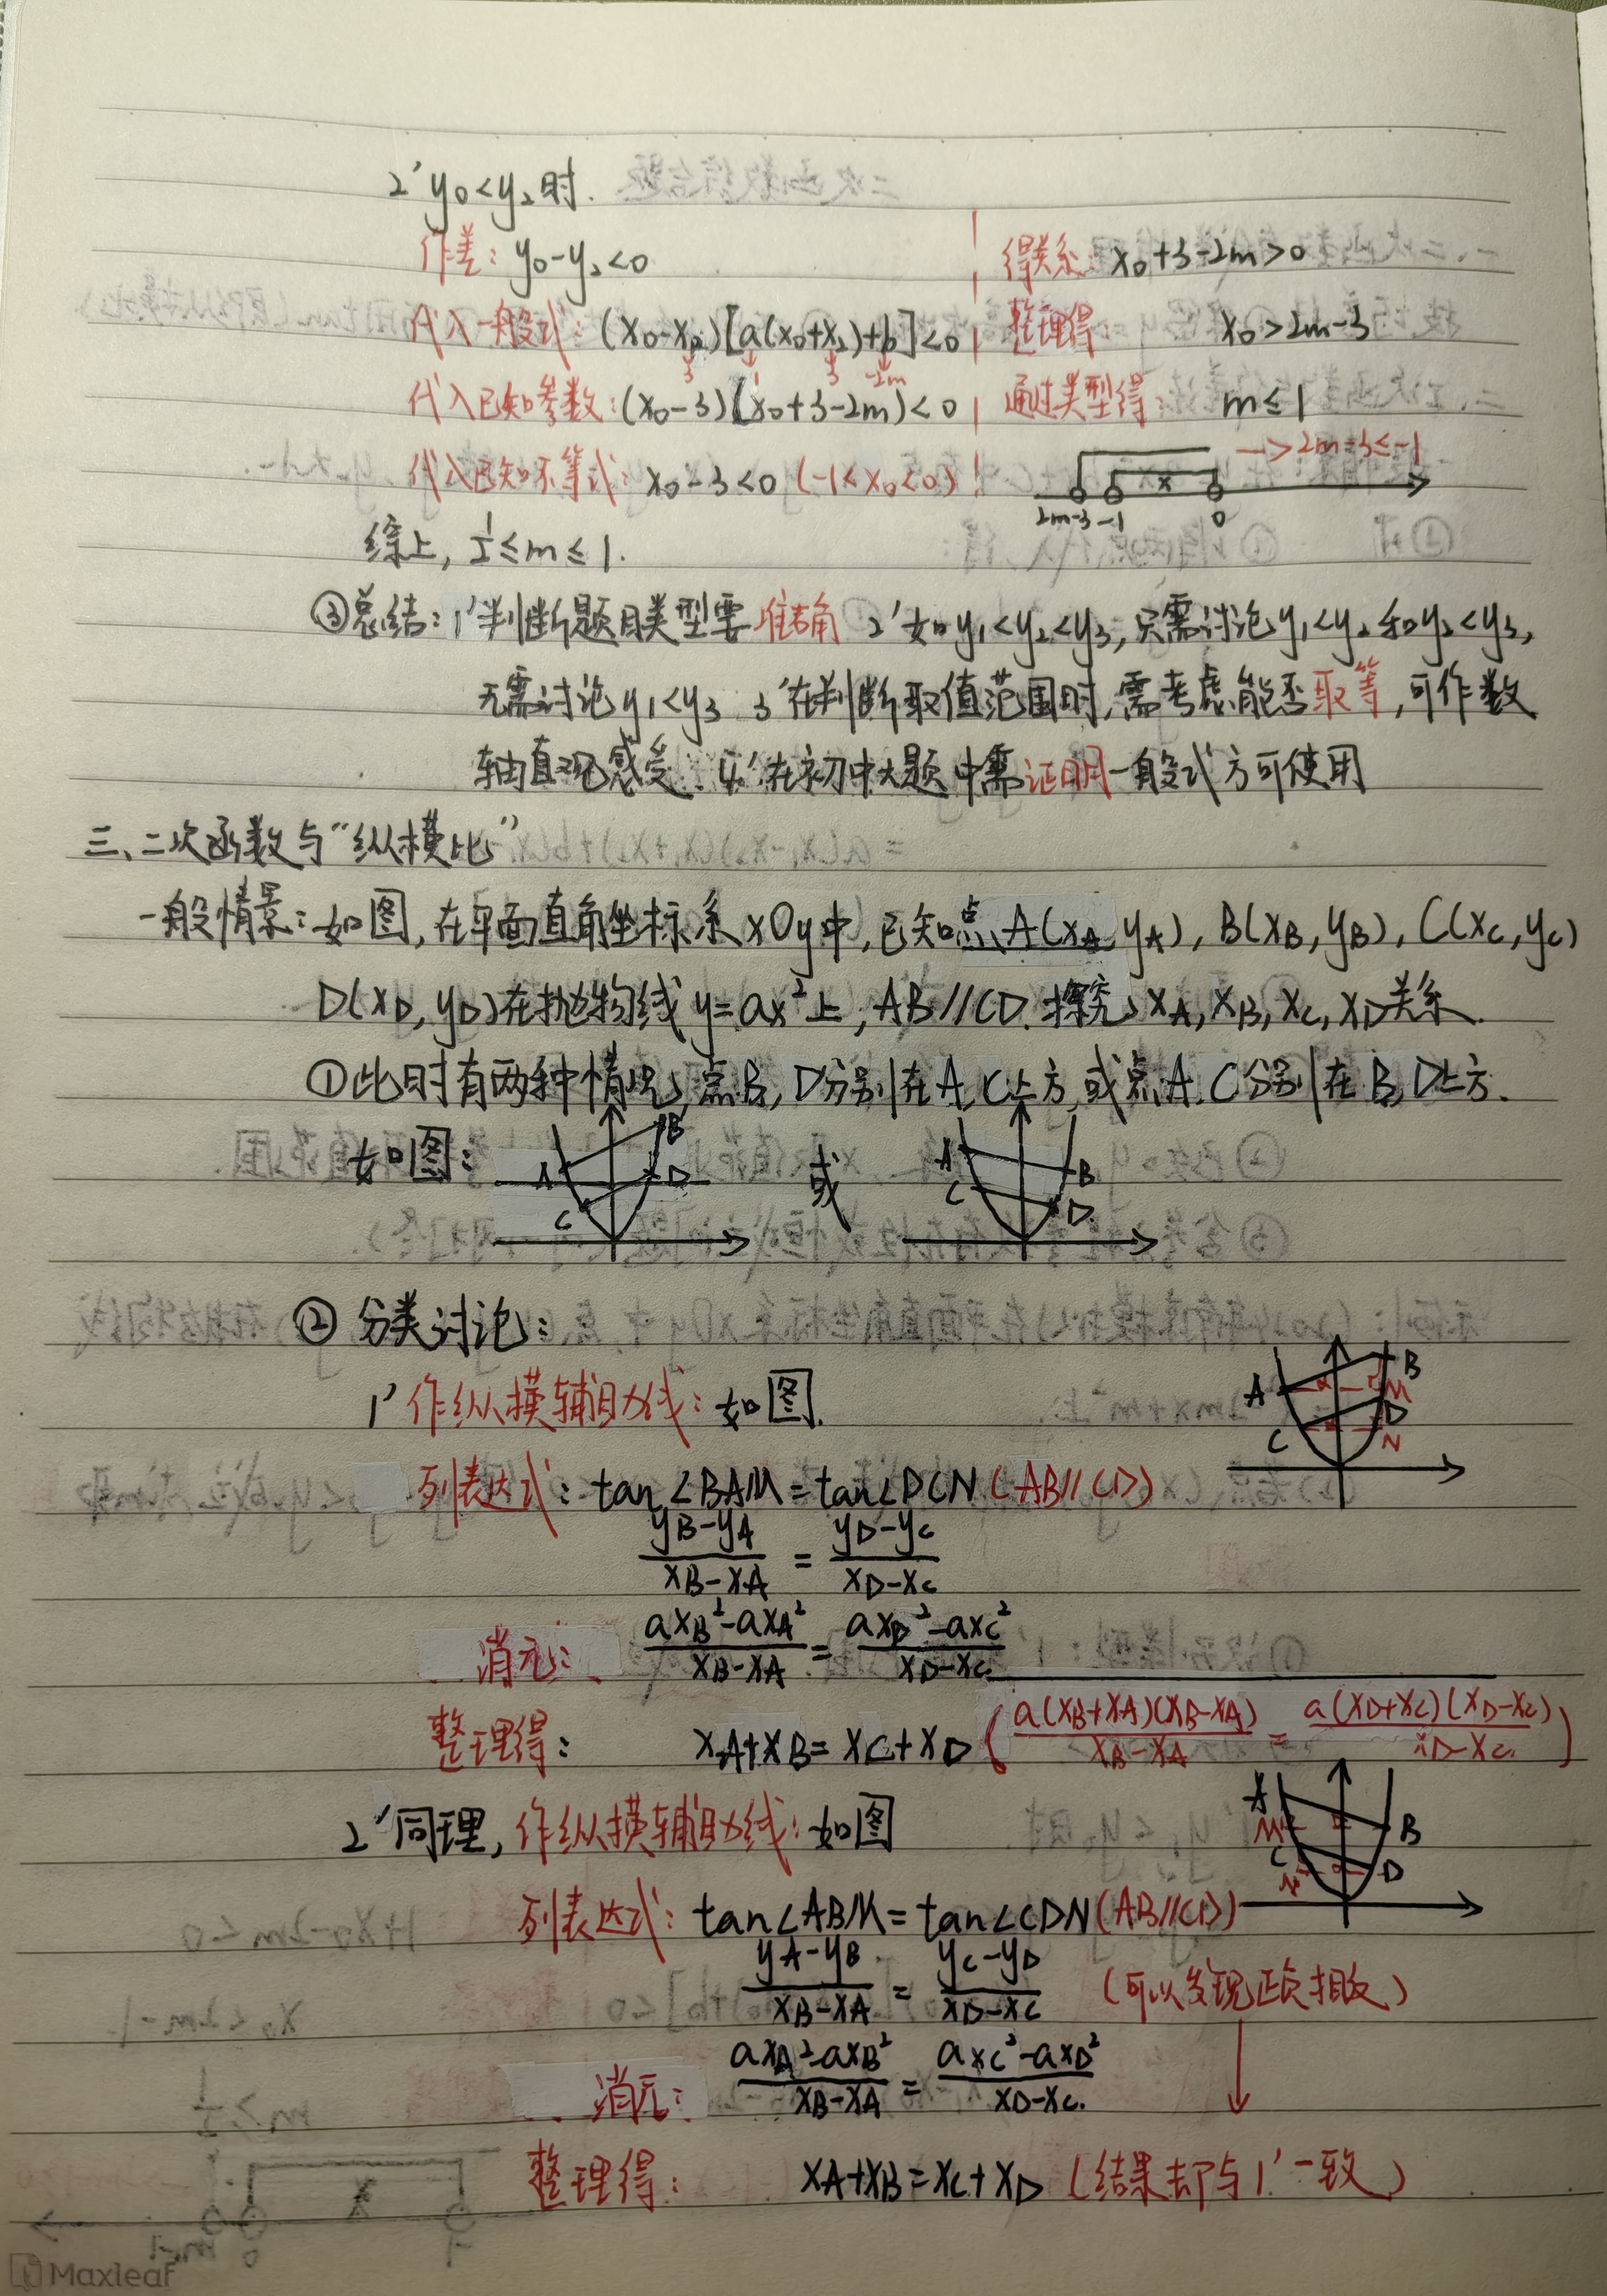 2' y₀<y₂时.
作差: y₀-y₂<0
代入一般式: (x₀-x₂)[a(x₀+x₂)+b]<0
3 1 3 -2m
代入已知参数: (x₀-3)(x₀+3-2m)<0
代入已知不等式: x₀-3<0 (-1<x₀<0)
得关系: x₀+3-2m>0
整理得: x₀>2m-3
通过类型得: m≤1
-> 2m-3≤-1
x
2m-3 -1 0
综上, 1/2≤m≤1.
③总结: 1'判断题目类型要准确 2'如y₁<y₂<y₃, 只需讨论y₁<y₂和y₂<y₃,
无需讨论y₁<y₃ 3'在判断取值范围时,需考虑能否取等,可作数
轴直观感受. 4'在初中大题中需证明一般式方可使用
三、二次函数与“纵横比”
一般情景: 如图,在平面直角坐标系xOy中,已知点A(xA,yA), B(xB,yB), C(xC,yC)
D(xD,yD)在抛物线y=ax²上, AB//CD. 探究xA,xB,xC,xD关系.
①此时有两种情况,点B,D分别在A,C上方或点A,C分别在B,D上方.
如图: A B C D 或 A B C D
②分类讨论:
1'作纵横辅助线: 如图.
A B M C D N
列表达式: tan∠BAM=tan∠DCN (AB//CD)
(yB-yA)/(xB-xA) = (yD-yC)/(xD-xC)
消元: (axB²-axA²)/(xB-xA) = (axD²-axC²)/(xD-xC)
整理得: xA+xB=xC+xD (a(xB+xA)(xB-xA)/(xB-xA) = a(xD+xC)(xD-xC)/(xD-xC))
2'同理,作纵横辅助线: 如图
A M B C N D
列表达式: tan∠ABM=tan∠CDN (AB//CD)
(yA-yB)/(xB-xA) = (yC-yD)/(xD-xC) (可以发现正负相反)
消元: (axA²-axB²)/(xB-xA) = (axC²-axD²)/(xD-xC)
整理得: xA+xB=xC+xD (结果却与1'一致)
Maxleaf